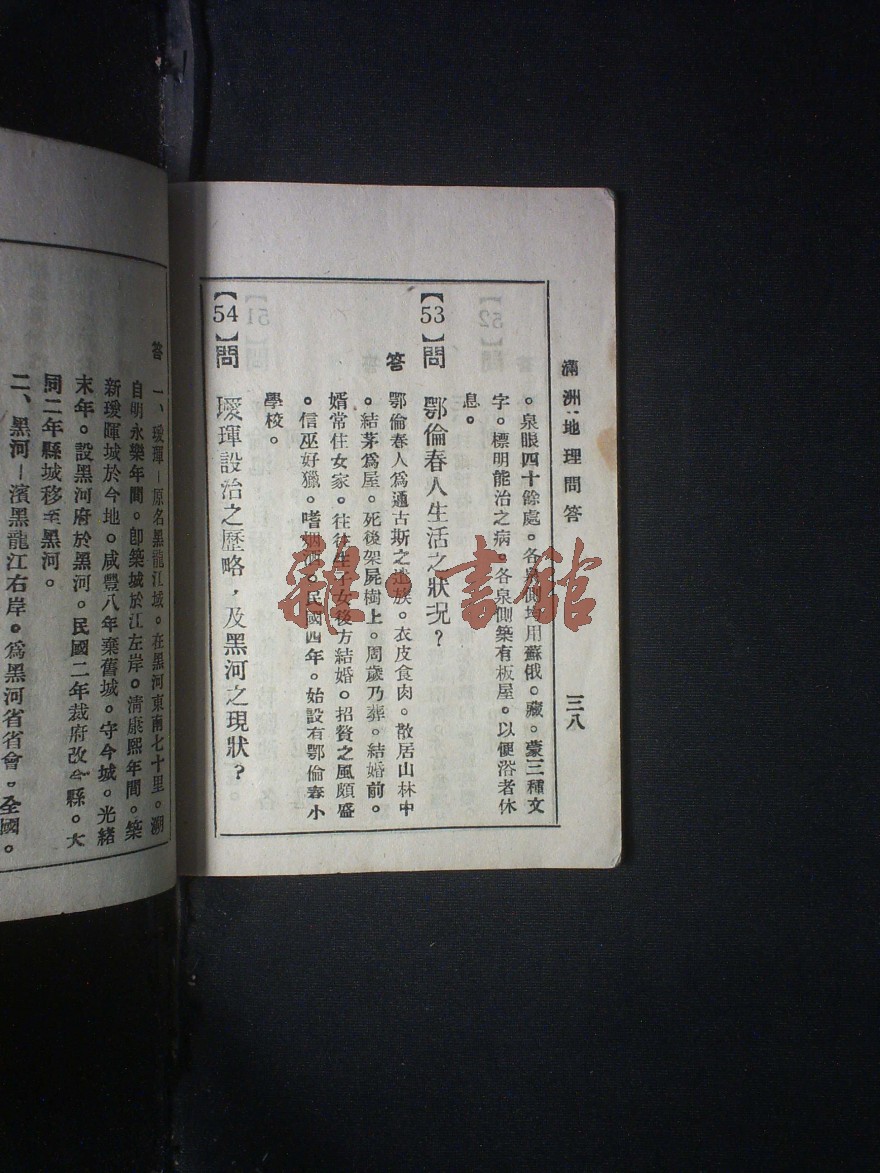 滿洲地理問答
三八
。泉眼四十餘處。各泉側均用蘇俄。藏。蒙三種文
字。標明能治之病。各泉側築有板屋。以便浴者休
息。
【53】問 鄂倫春人生活之狀況？
答 鄂倫春人爲通古斯之遺族。衣皮食肉。散居山林中
。結茅爲屋。死後架屍樹上。周歲乃葬。結婚前。
婿常住女家。往往生子女後方結婚。招贅之風頗盛
。信巫好獵。嗜烟酒。民國四年。始設有鄂倫春小
學校。
【54】問 璦琿設治之歷略，及黑河之現狀？
答 一、璦琿－原名黑龍江城。在黑河東南七十里。溯
自明永樂年間。卽築城於江左岸。淸康熙年間。築
新璦暉城於今地。咸豐八年棄舊城。守今城。光緖
末年。設黑河府於黑河。民國二年裁府改今縣。大
同二年縣城移至黑河。
二、黑河－濱黑龍江右岸。爲黑河省省會。全國。
雜·書館